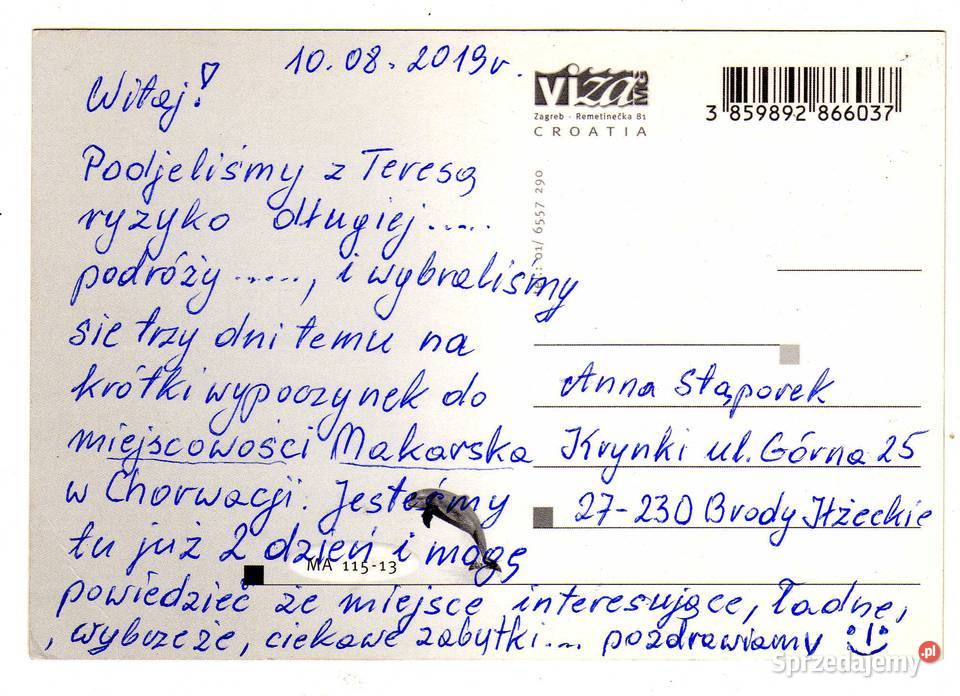 10.08.2019r.
Witaj!
Podjeliśmy z Teresą
ryzyko długiej.....
podróży ......, i wybraliśmy
sie trzy dni temu na
krótki wypoczynek do
miejscowości Makarska
w Chorwacji. Jesteśmy
tu już 2 dzień i mogę
powiedzieć że miejsce interesujące, ładne,
, wybrzeże, ciekawe zabytki.... pozdrawiamy
viza MG
Zagreb - Remetinečka 81
CROATIA
3 859892 866037
01/ 6557 290
Anna Stąporek
Krynki ul. Górna 25
27-230 Brody Iłżeckie
MA 115-13
Sprzedajemy.pl